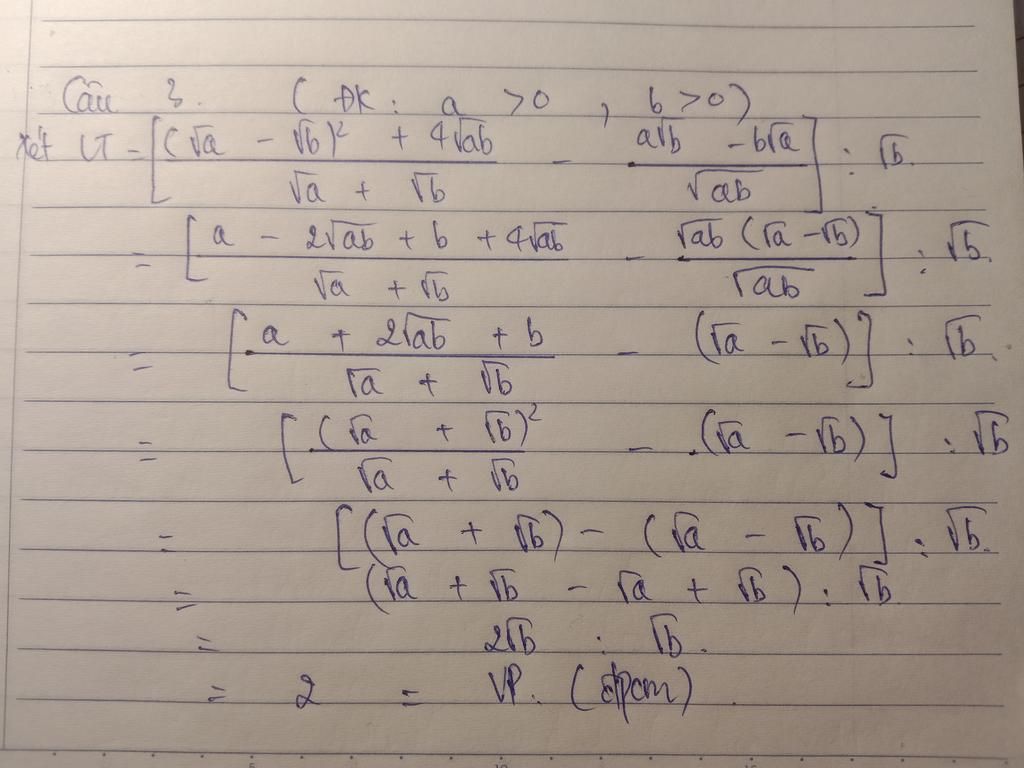 Câu 3. ( ĐK : a > 0 , b > 0 )
Xét VT = [ ( (√a - √b)² + 4√ab ) / ( √a + √b ) - ( a√b - b√a ) / √ab ] : √b.
= [ ( a - 2√ab + b + 4√ab ) / ( √a + √b ) - √ab (√a - √b) / √ab ] : √b.
= [ ( a + 2√ab + b ) / ( √a + √b ) - (√a - √b) ] : √b.
= [ (√a + √b)² / ( √a + √b ) - (√a - √b) ] : √b
= [ (√a + √b) - (√a - √b) ] : √b.
= (√a + √b - √a + √b) : √b.
= 2√b : √b.
= 2 = VP. (đpcm).